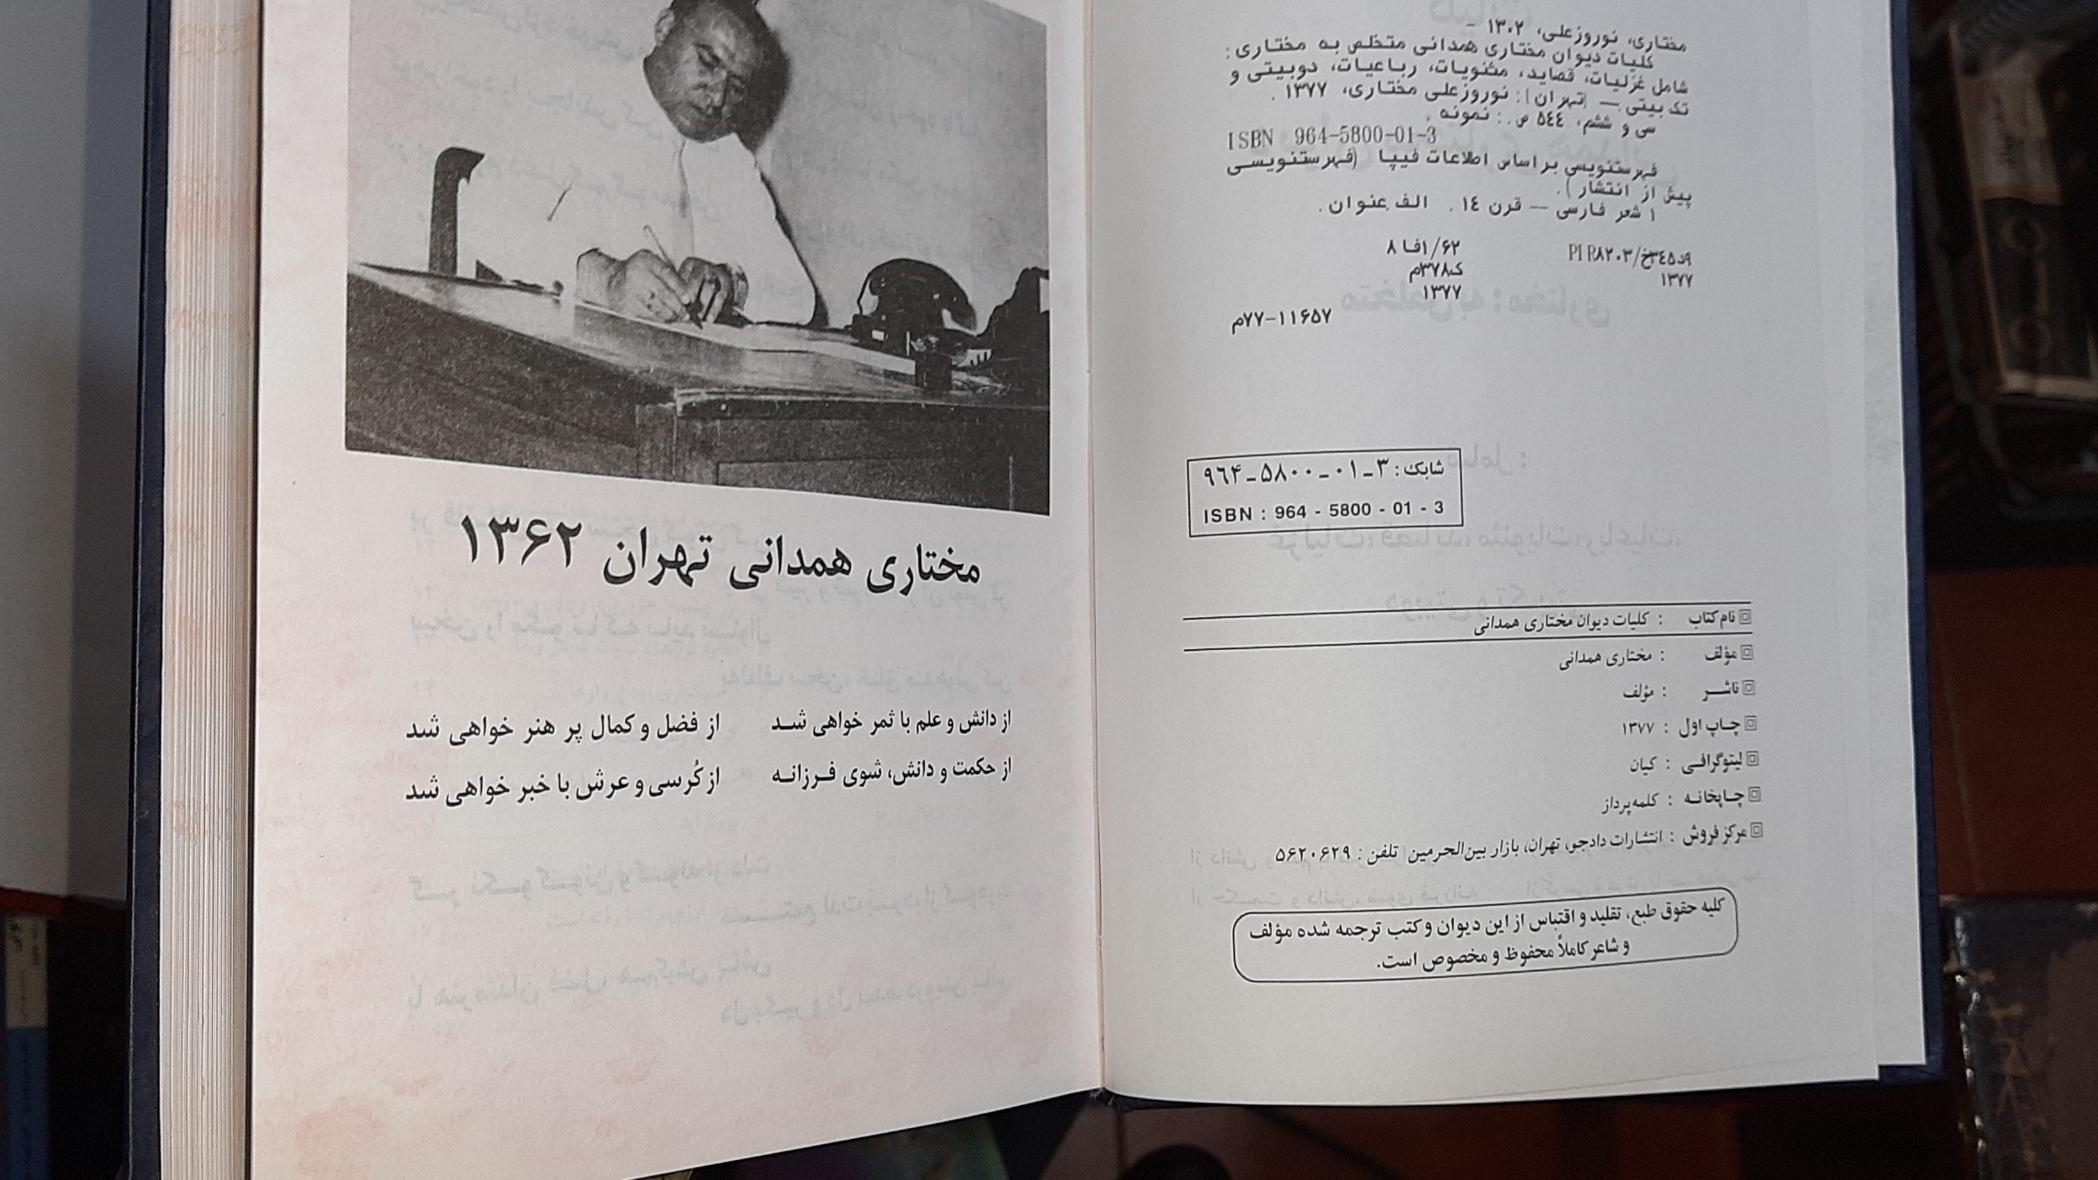 مختاری، نوروزعلی، ۱۳۰۲ -
کلیات دیوان مختاری همدانی متخلص به مختاری:
شامل غزلیات، قصاید، مثنویات، رباعیات، دوبیتی و
تک بیتی.— [تهران]: نوروزعلی مختاری، ۱۳۷۷ .
سی و ششم، ۵٤٤ ص.: نمونه .
ISBN 964-5800-01-3
فهرستنویسی براساس اطلاعات فیپا (فهرستنویسی
پیش از انتشار).
۱ شعر فارسی — قرن ۱٤ . الف.عنوان.
۸فا۱/۶۲
ک۳۷۸م
۱۳۷۷
PIR۸۲۰۳/
۱۳۷۷
م۷۷-۱۱۶۵۷
شابک: ۳-۰۱-۵۸۰۰-۹٦۴
ISBN : 964 - 5800 - 01 - 3
نام کتاب : کلیات دیوان مختاری همدانی
مؤلف : مختاری همدانی
ناشـر : مؤلف
چـاپ اول : ۱۳۷۷
لیتوگرافـی : کیان
چـاپخانـه : کلمه‌پرداز
مرکز فروش : انتشارات دادجو، تهران، بازار بین‌الحرمین تلفن: ۵۶۲۰۶۲۹
کلیه حقوق طبع، تقلید و اقتباس از این دیوان و کتب ترجمه شده مؤلف
و شاعر کاملاً محفوظ و مخصوص است.
مختاری همدانی تهران ۱۳۶۲
از دانش و علم با ثمر خواهی شـد از فضل و کمال پر هنر خواهی شد
از حکمت و دانش، شوی فـرزانـه از کُرسی و عرش با خبر خواهی شد